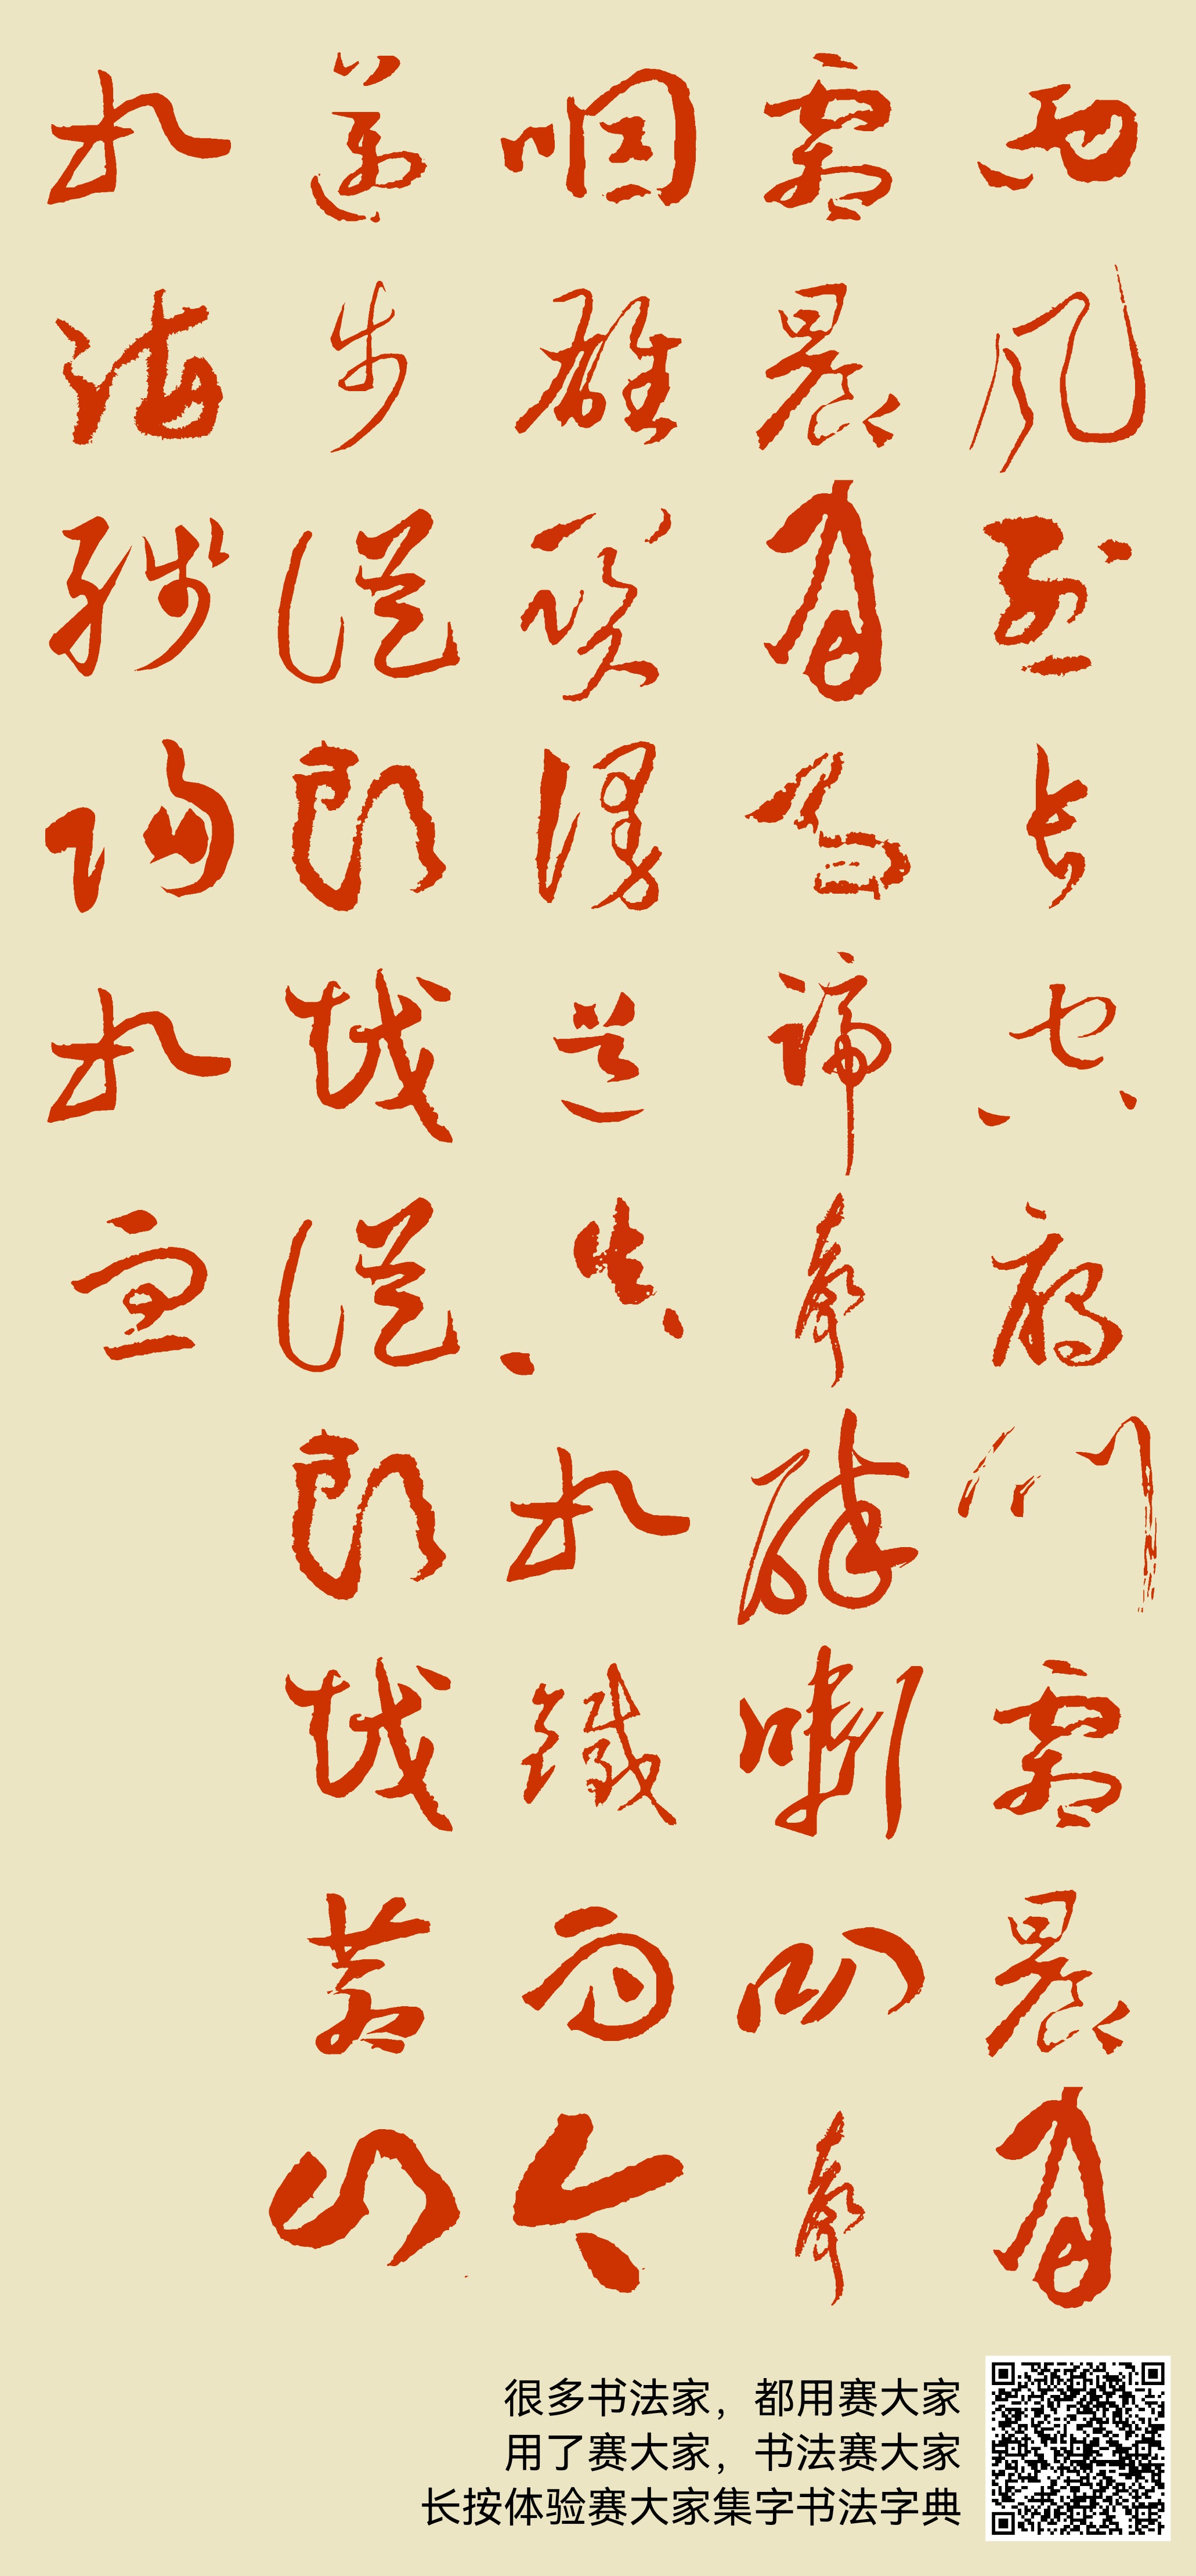 西風烈長空雁叫霜晨月
霜晨月馬蹄聲碎喇叭聲
咽雄關漫道真如鐵而今
邁步從頭越從頭越蒼山
如海殘陽如血
很多书法家，都用赛大家
用了赛大家，书法赛大家
长按体验赛大家集字书法字典